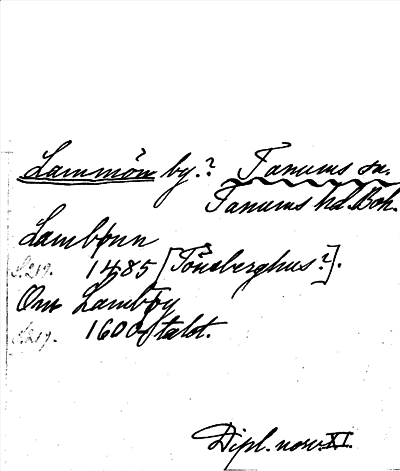 Lammön by.? Tanums sn.
Tanums hd. Boh.
Lambønn
S. 219. 1485 [Tönsberghus?].
Om Lambøy
S. 219. 1600 talet.
Dipl. norv. XI.